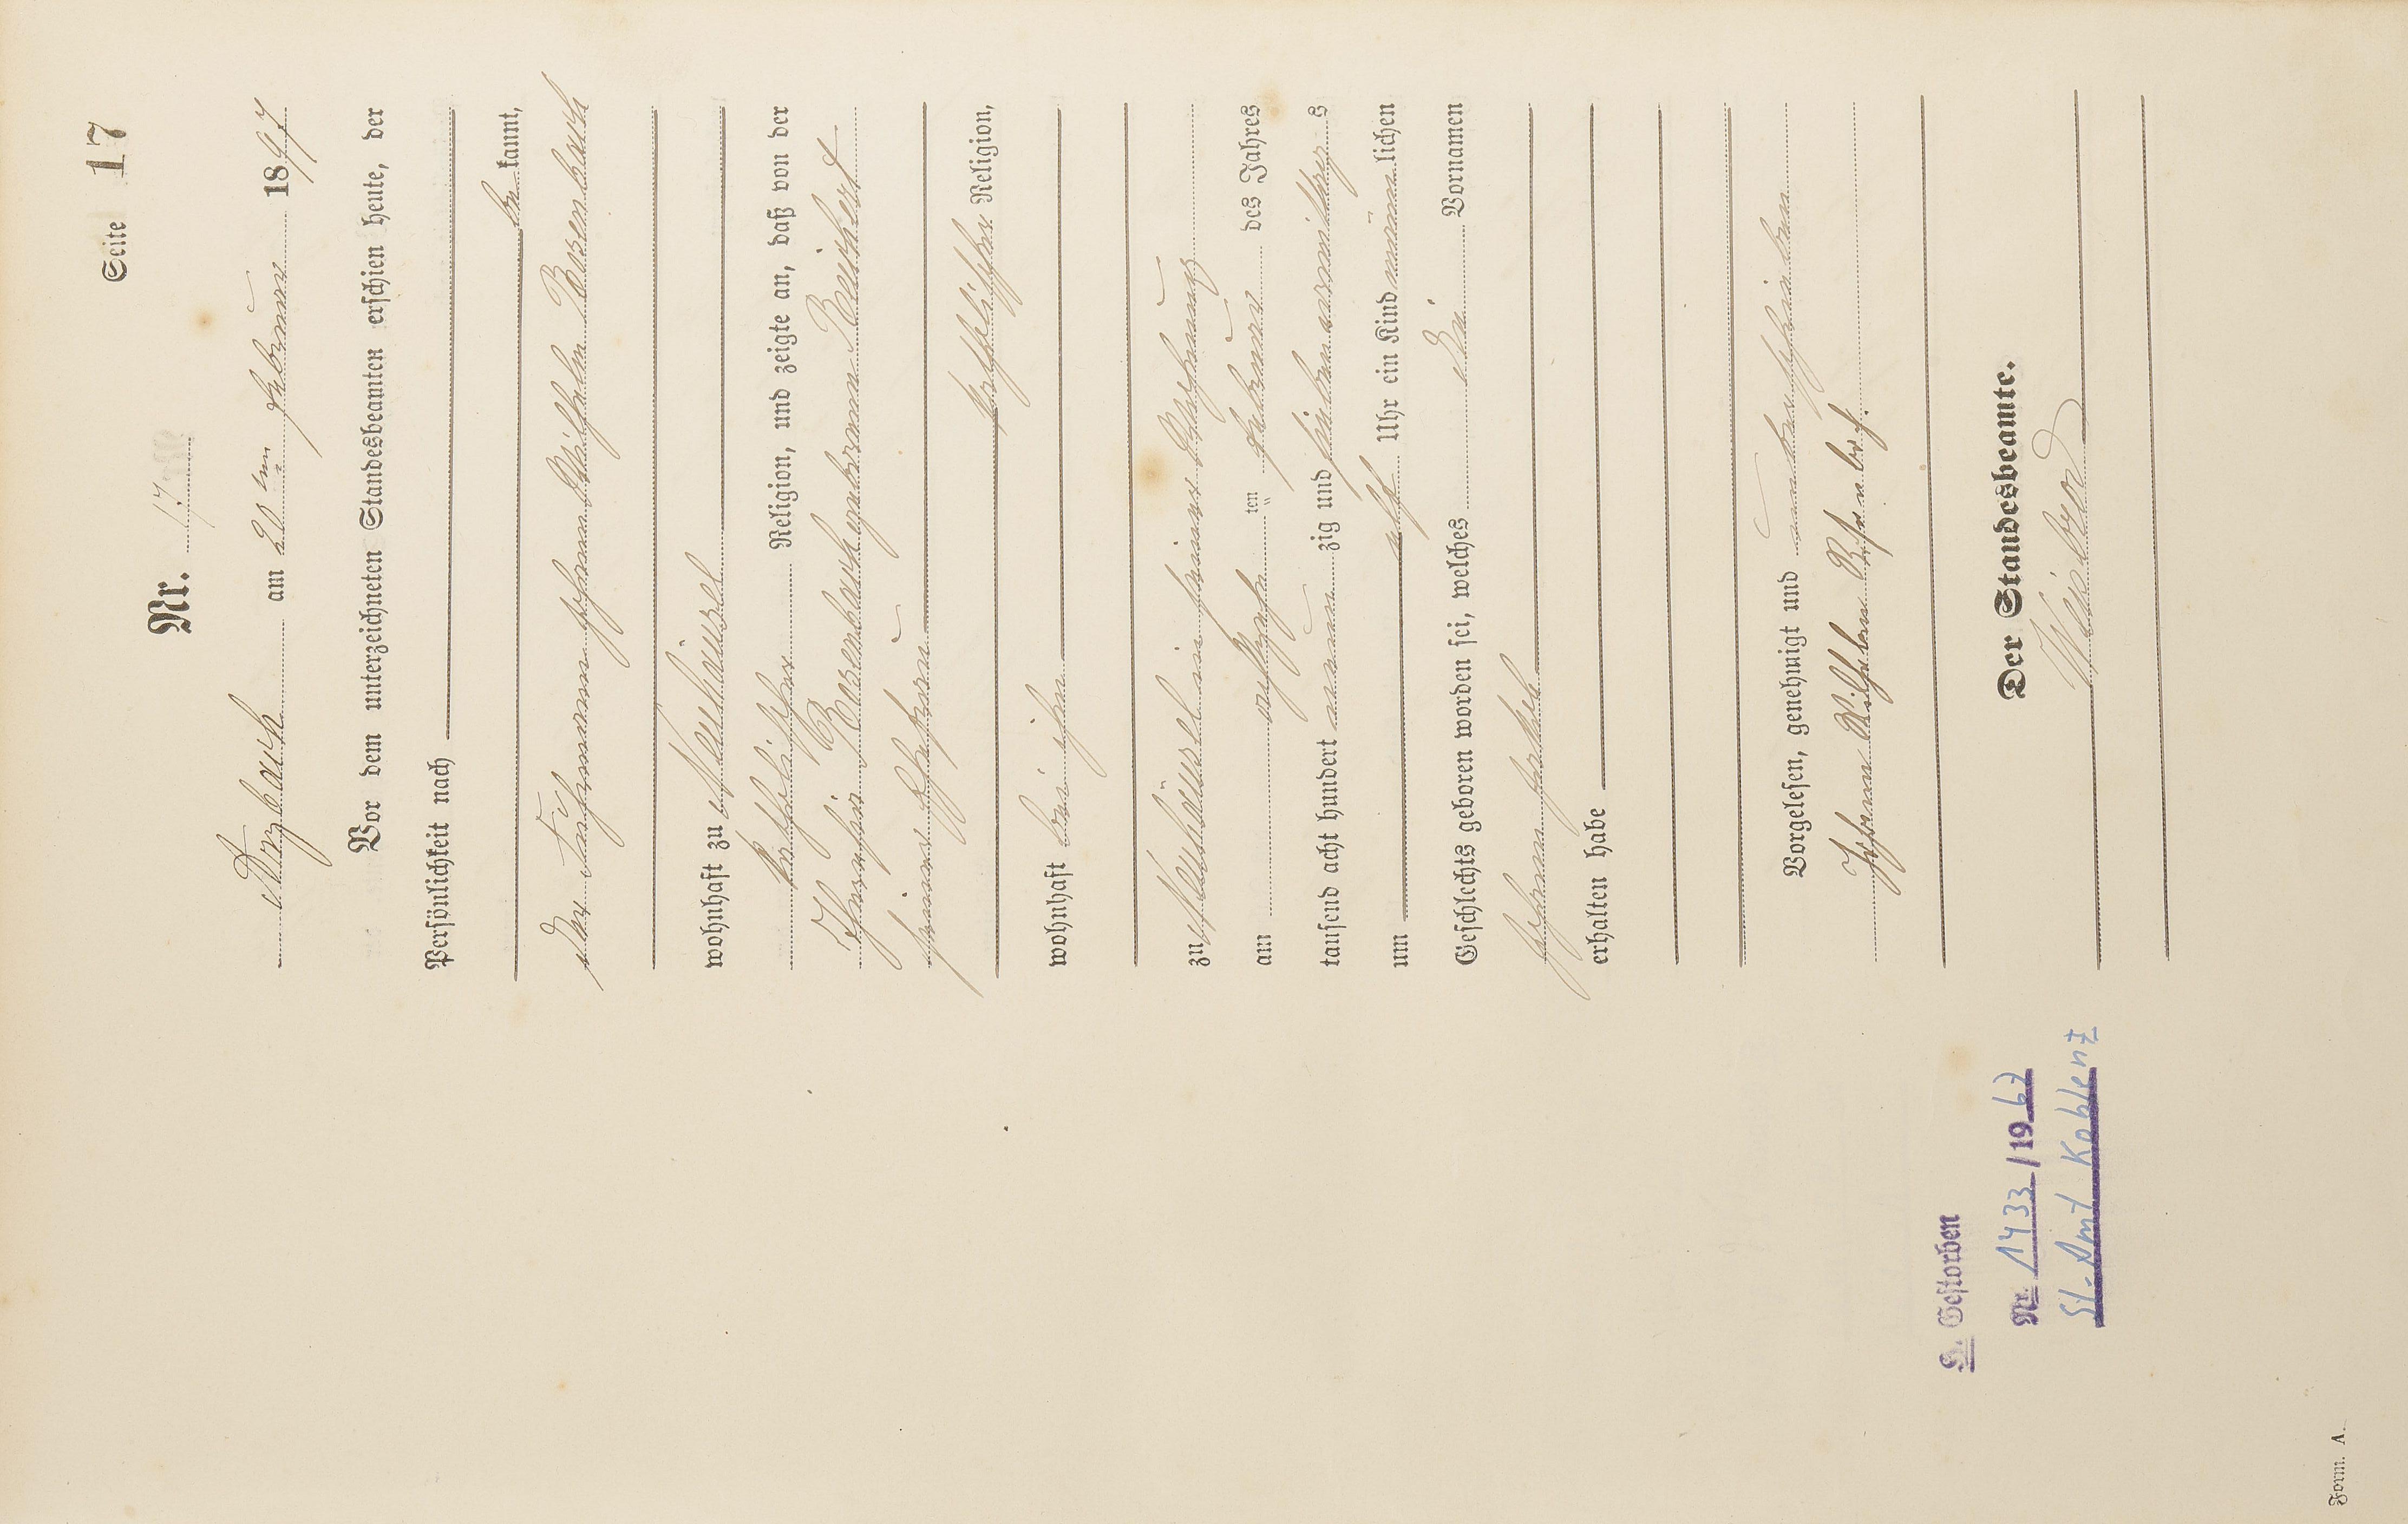 Seite 17
Nr. 17
Arzbach am 20ten Februar 1897
Vor dem unterzeichneten Standesbeamten erschien heute, der
Persönlichkeit nach
be kannt,
der Johann Wilhelm Rosenbach
wohnhaft zu Neuhäusel
katholischer Religion, und zeigte an, daß von der
Theresia Rosenbach geborenen Reichert
seiner Ehefrau
katholischer Religion,
wohnhaft bei ihm
zu Neuhäusel in seiner Wohnung
am achtzehn ten Februar des Jahres
tausend acht hundert neun zig und sieben vormittags
um elf Uhr ein Kind männlichen
Geschlechts geboren worden sei, welches die Vornamen
Johann Jakob
erhalten habe
Vorgelesen, genehmigt und unterschrieben
Johann Wilhelm
Der Standesbeamte.
Weisbrod
Gestorben
Nr. 1433/1967
St.-Amt Koblenz
Form. A.